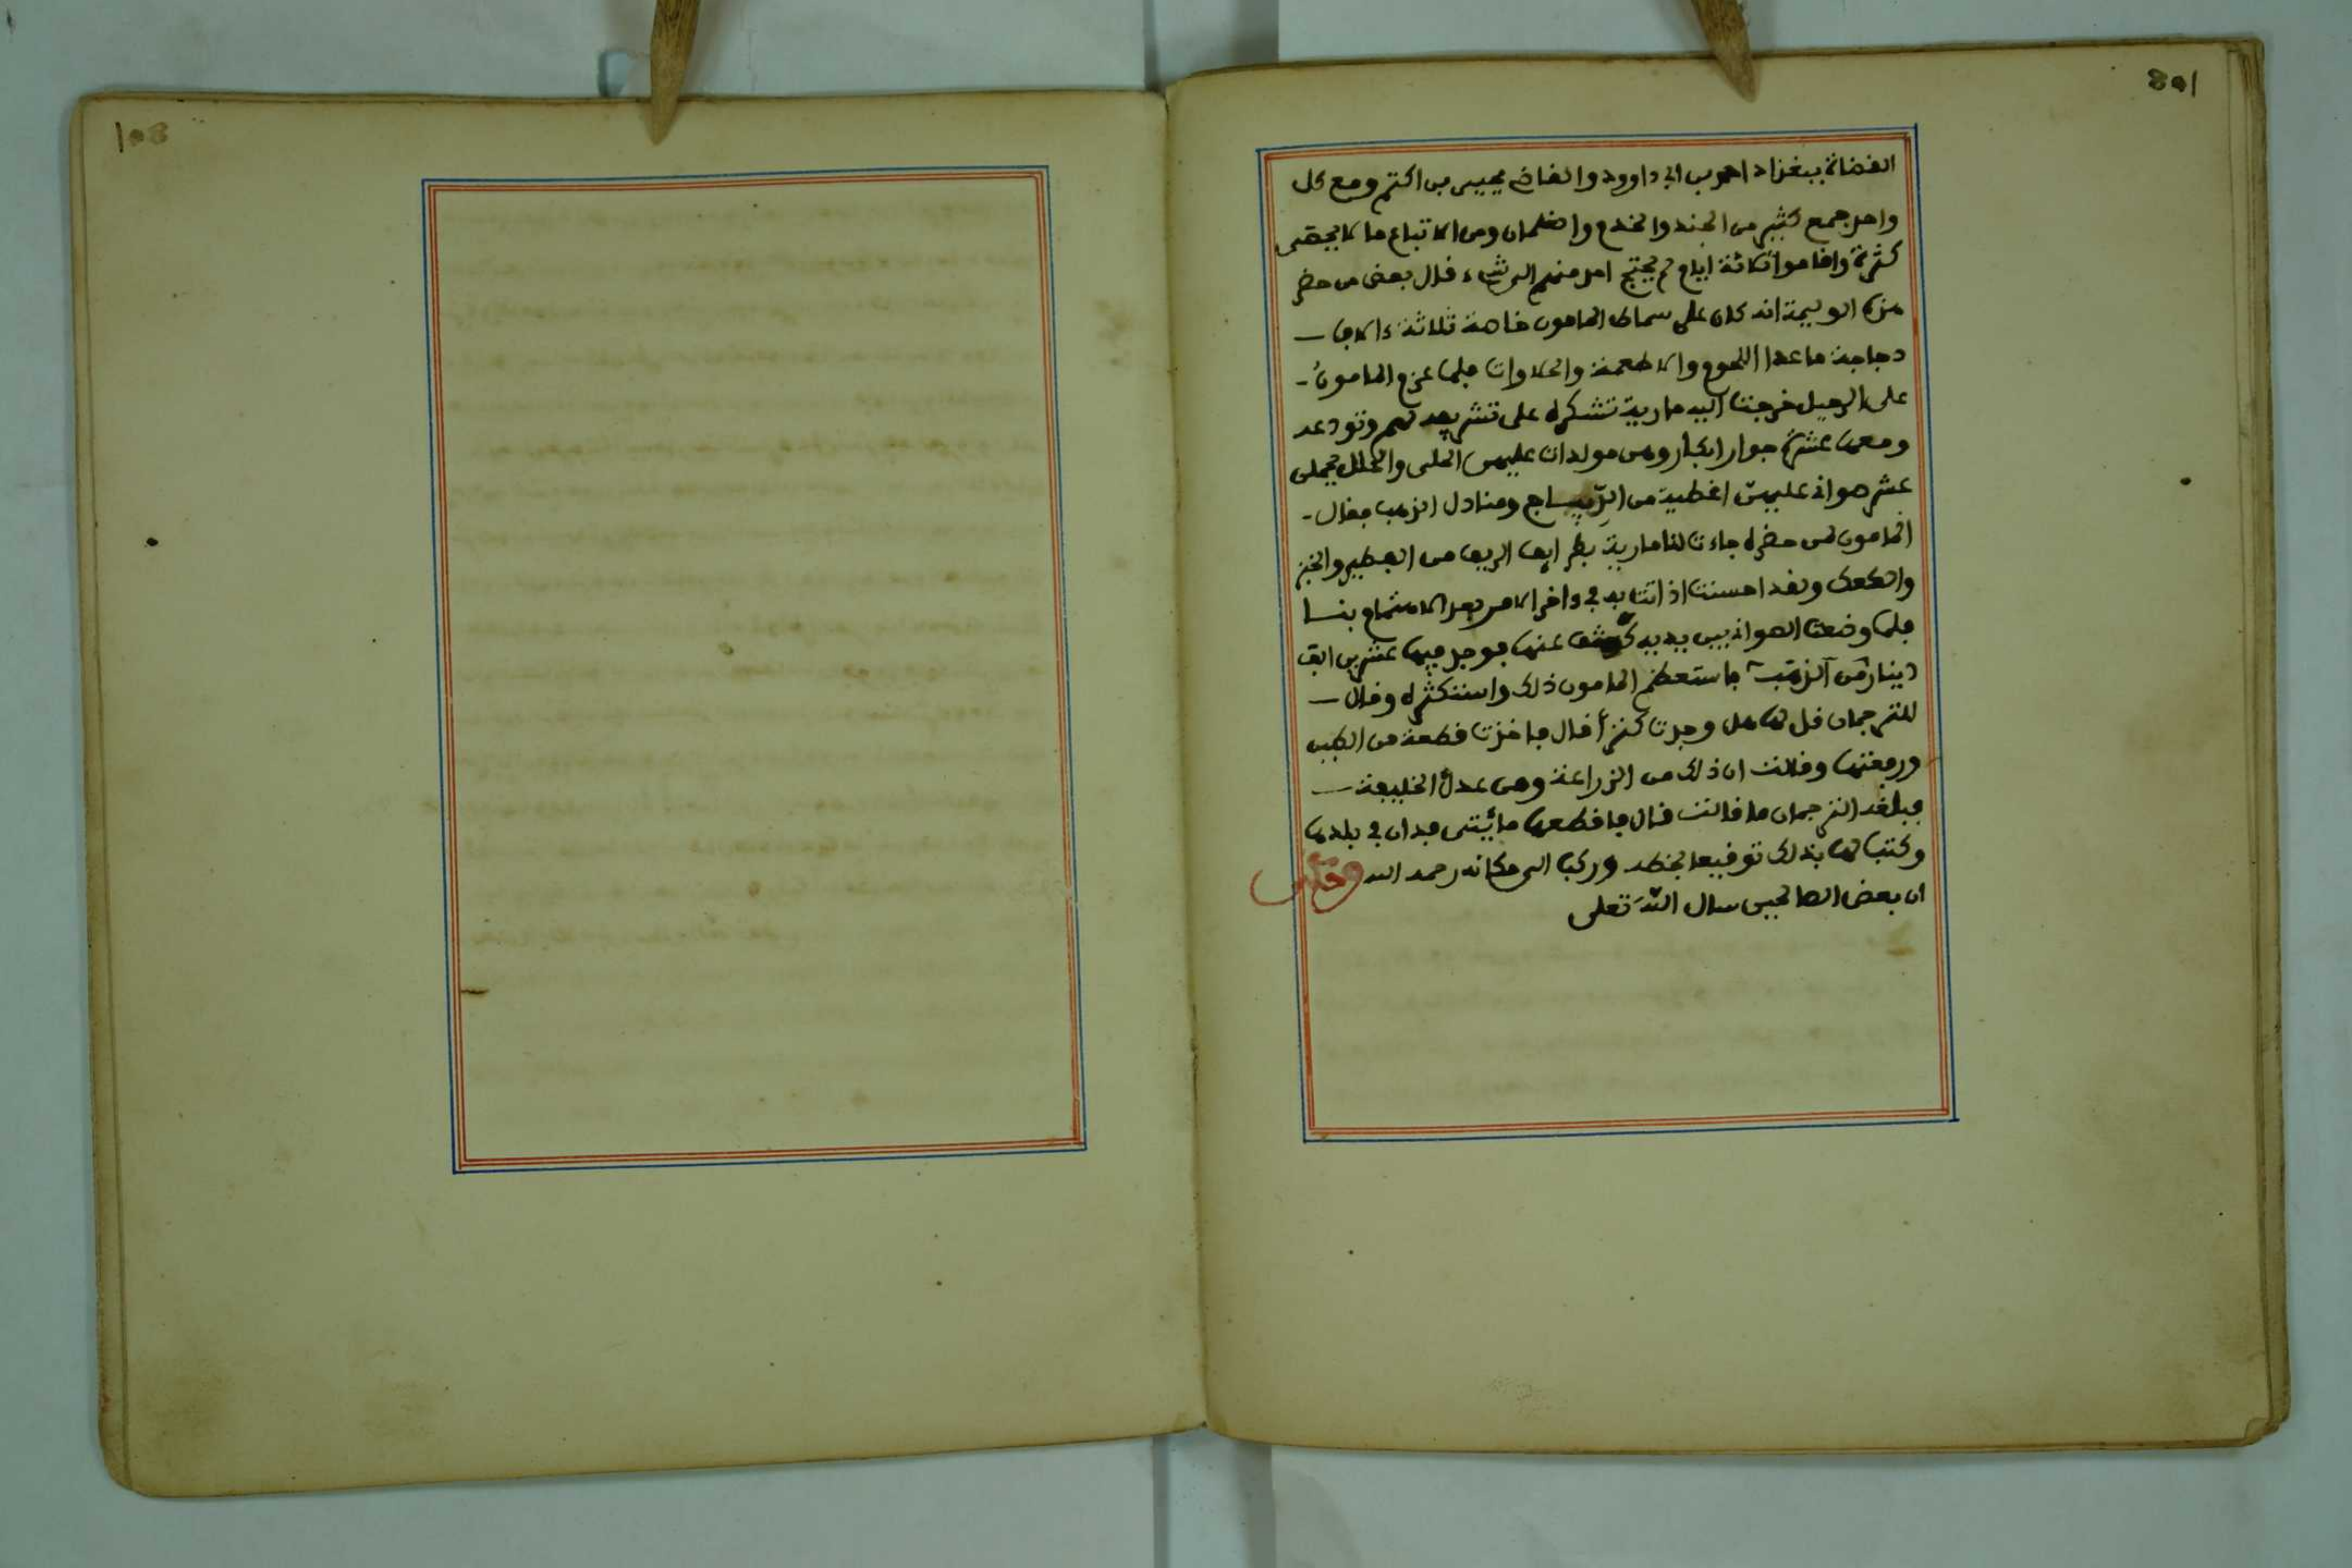 القضاة ببغداد احمد بن ابي داوود والقاضي يحيى بن اكتم ومع كل
واحد جمع كثير من الجند والخدم والغلمان ومن الاتباع ما لا يحصى
كثرة واقاموا ثلاثة ايام لم يحتج احد منهم الى شيء قال بعض من حضر
هذه الوليمة انه كان على سماط المامون خاصة ثلاثة ءالاف
دجاجة ما عدا اللحوم والاطعمة والحلاوات فلما عزم المامون
على الرحيل خرجت اليه مارية تشكره على تشريفه لهم وتودعه
ومعها عشرة جوار ابكار وهن مولدات عليهن الحلي والحلل يحملن
عشر صواني عليهن اغطية من الديباج ومنادل الذهب فقال
المامون لمن حضره جاءت لنا مارية بطرايف الريف من الفطير والخبز
والكعك ولقد احسنت اذ اتت به في ءاخر الامر بعد الاهتمام بنا
فلما وضعت الصواني بين يديه كشف عنها فوجد فيها عشرين الف
دينار من الذهب فاستعظم المامون ذلك واستكثره وقال
للترجمان قل لها هل وجدت كنزا قال فاخذت قطعة من الطين
ورفعتها وقالت ان ذلك من الزراعة ومن عدل الخليفة
فبلغه الترجمان ما قالت قال فاقطعها مائتي فدان في بلدها
وكتب لها بذلك توقيعا بخطه وركب الى مكانه رحمه الله وحكي
ان بعض الصالحين سال الله تعلى
108
108